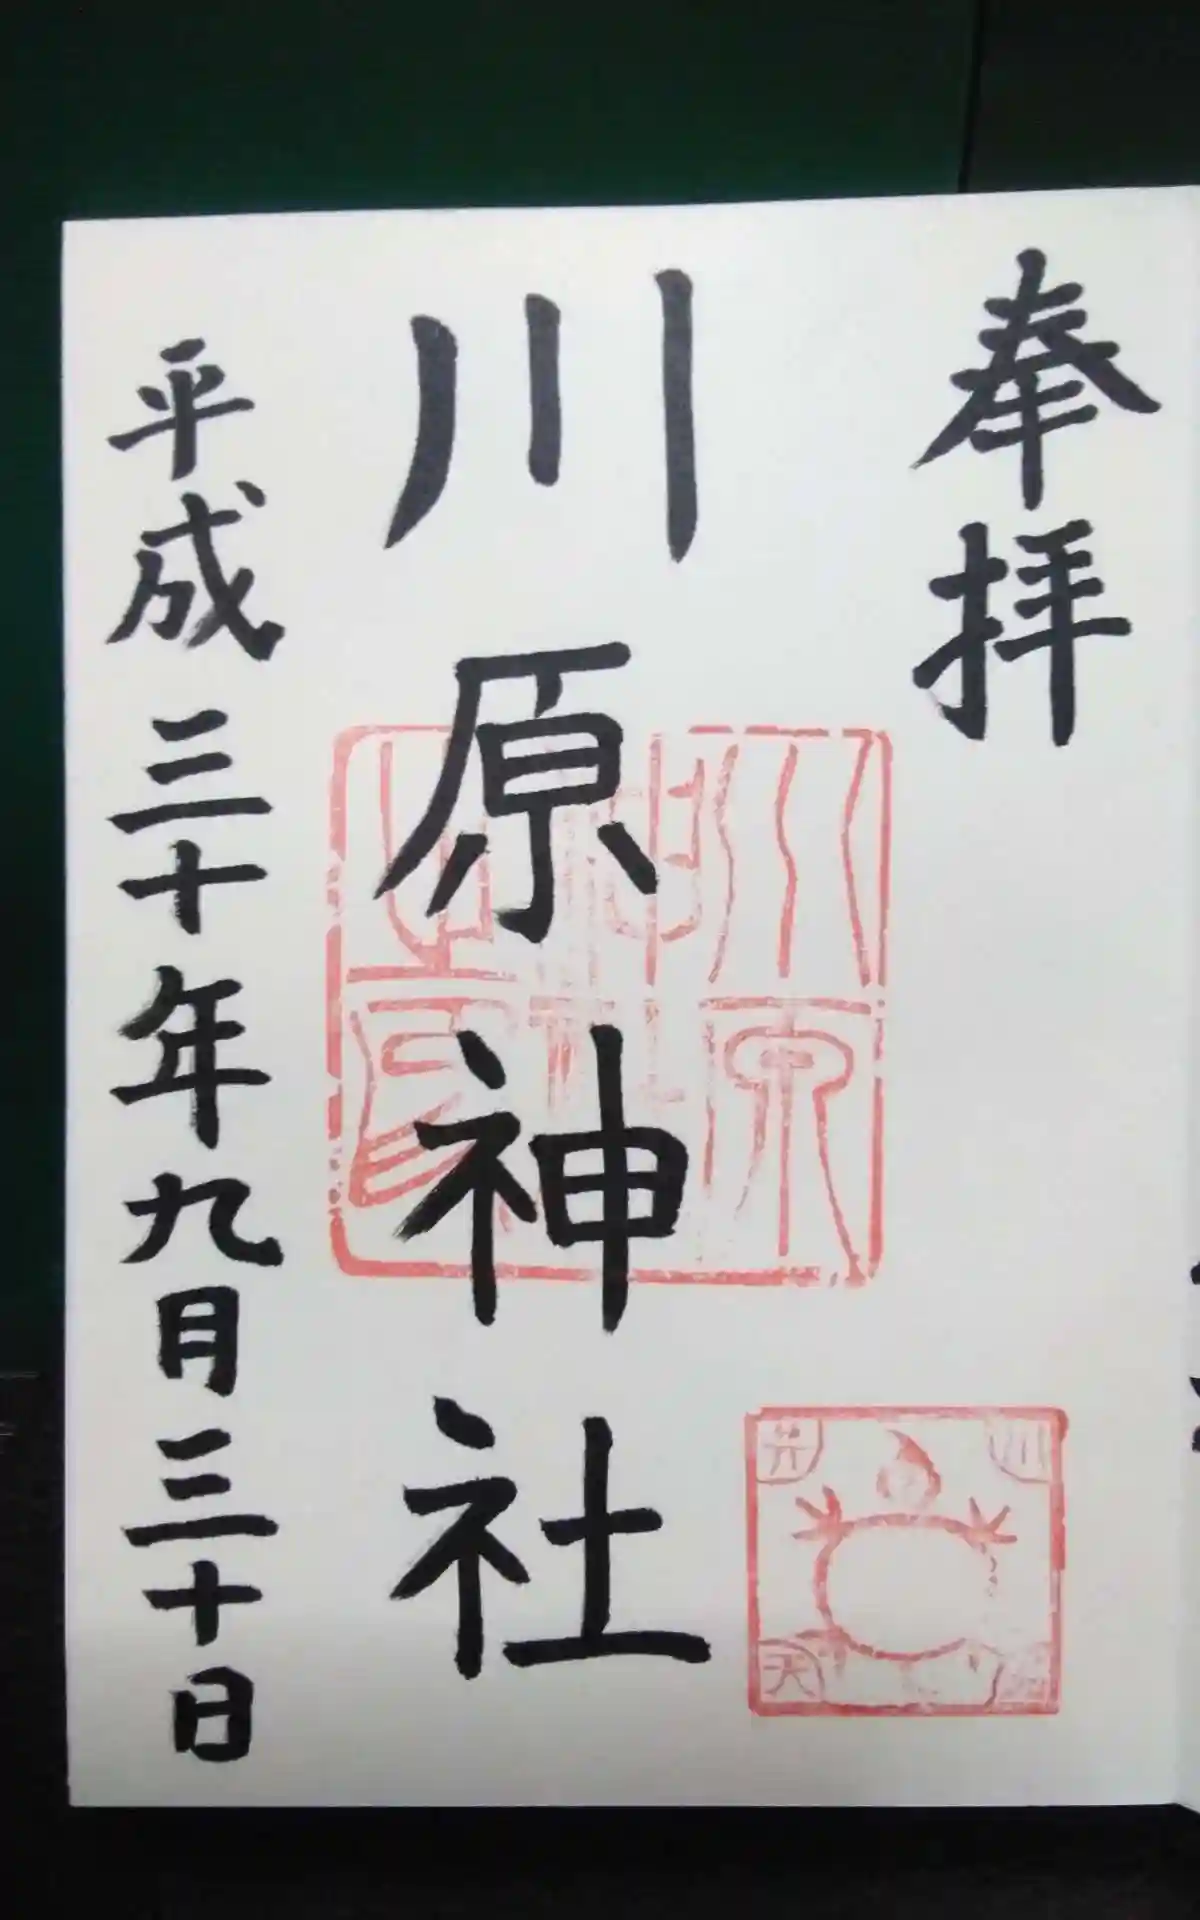 奉拝
川原神社
平成三十年九月三十日
川原
神社
之印
川
弁
天